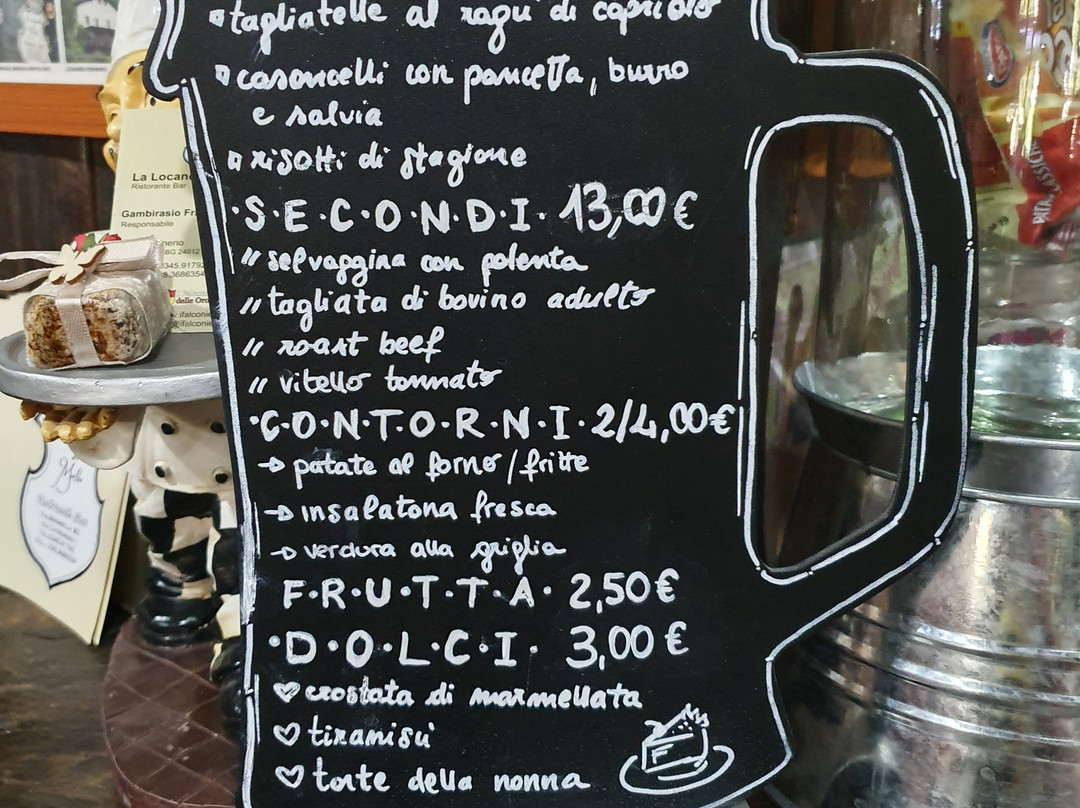 tagliatelle al ragù di capriolo
casoncelli con pancetta, burro
e salvia
risotti di stagione
·S·E·C·O·N·D·I· 13,00 €
// selvaggina con polenta
// tagliata di bovino adulto
// roast beef
// vitello tonnato
·C·O·N·T·O·R·N·I· 2/4,00€
→ patate al forno/fritte
→ insalatona fresca
→ verdura alla griglia
F·R·U·T·T·A· 2,50€
·D·O·L·C·I· 3,00 €
♡ crostata di marmellata
♡ tiramisù
♡ torte della nonna
La Locan
Ristorante Bar
Gambirasio Fr
Responsabile
BG 24012
delle Oro
Ristorante Bar